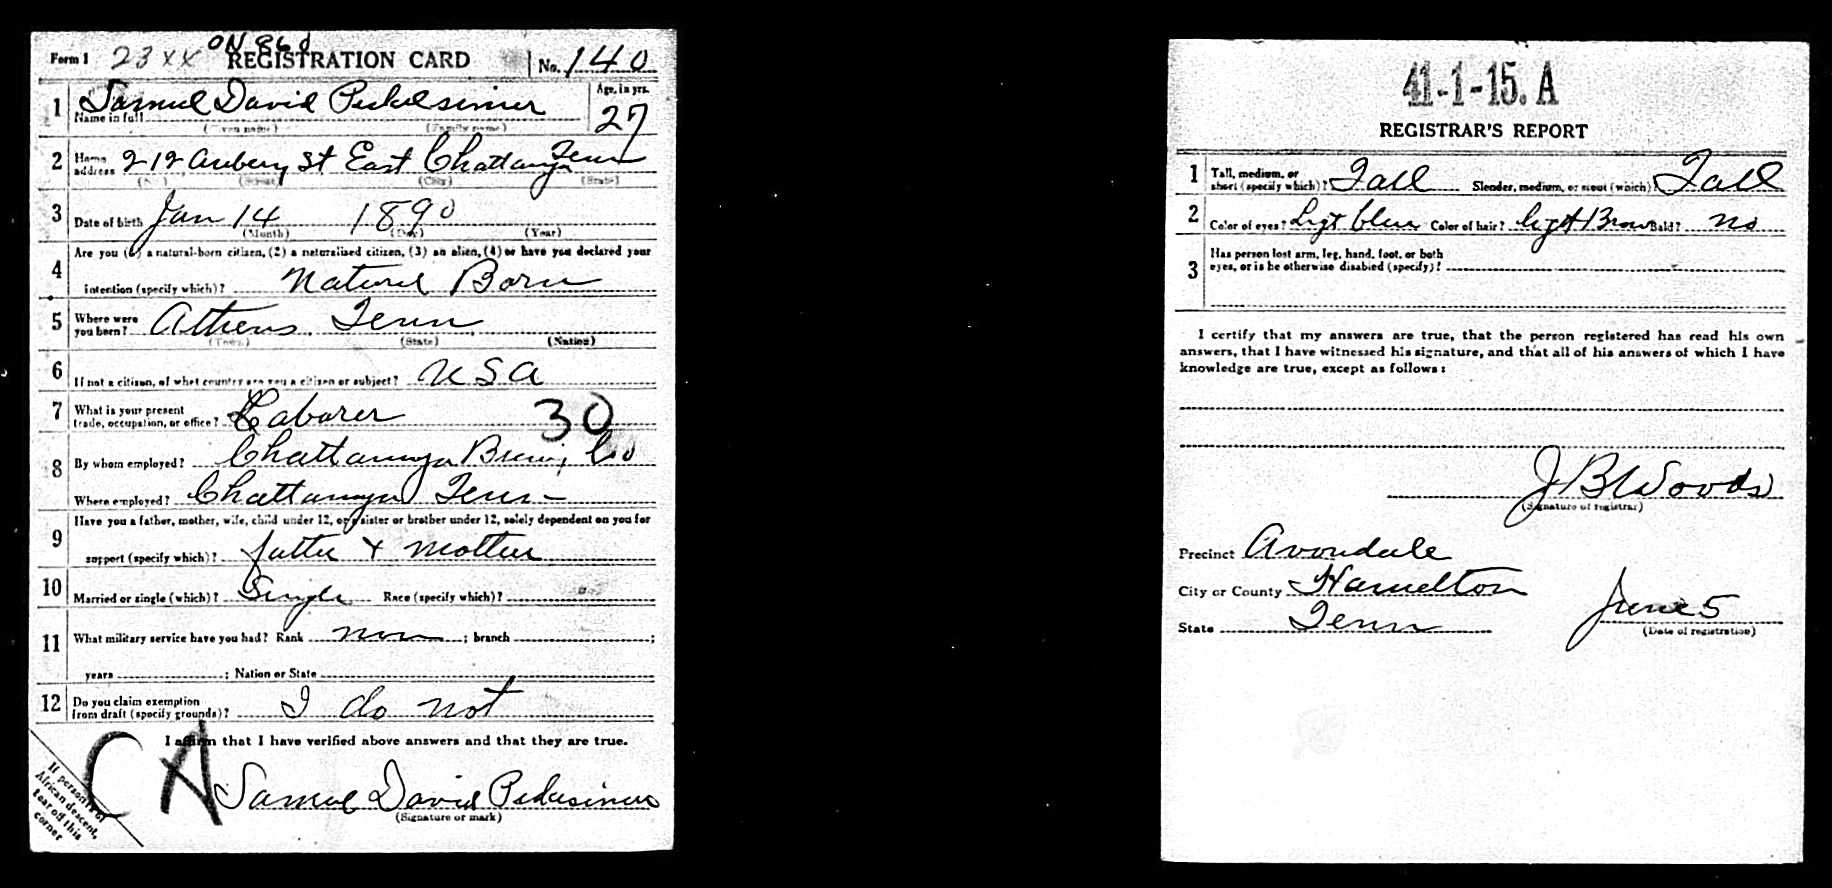 Form 1 23 xx ON 860 REGISTRATION CARD No. 140
1 Samuel David Age, in yrs.
Name in full 27
(Given name) (Family name)
2 Home address 212 St East Chattanooga Tenn
(No.) (Street) (City) (State)
3 Date of birth Jan 14 1890
(Month) (Day) (Year)
4 Are you (1) a natural-born citizen, (2) a naturalized citizen, (3) an alien, (4) or have you declared your
intention (specify which)? Natural Born
5 Where were you born? Athens Tenn
(Town) (State) (Nation)
6 If not a citizen, of what country are you a citizen or subject? USA
7 What is your present trade, occupation, or office? Laborer 30
8 By whom employed? Chattanooga Co
Where employed? Chattanooga Tenn
9 Have you a father, mother, wife, child under 12, or a sister or brother under 12, solely dependent on you for
support (specify which)? father & mother
10 Married or single (which)? Single Race (specify which)?
11 What military service have you had? Rank none ; branch ;
years ; Nation or State
12 Do you claim exemption from draft (specify grounds)? I do not
I affirm that I have verified above answers and that they are true.
C A
Samuel David
(Signature or mark)
If person is of African descent, tear off this corner
41-1-15. A
REGISTRAR'S REPORT
1 Tall, medium, or short (specify which)? Tall Slender, medium, or stout (which)? Tall
2 Color of eyes? Ligt blue Color of hair? light Brown Bald? no
3 Has person lost arm, leg, hand, foot, or both eyes, or is he otherwise disabled (specify)?
I certify that my answers are true, that the person registered has read his own
answers, that I have witnessed his signature, and that all of his answers of which I have
knowledge are true, except as follows:
J B Woods
(Signature of registrar)
Precinct Avondale
City or County Hamelton
State Tenn June 5
(Date of registration)